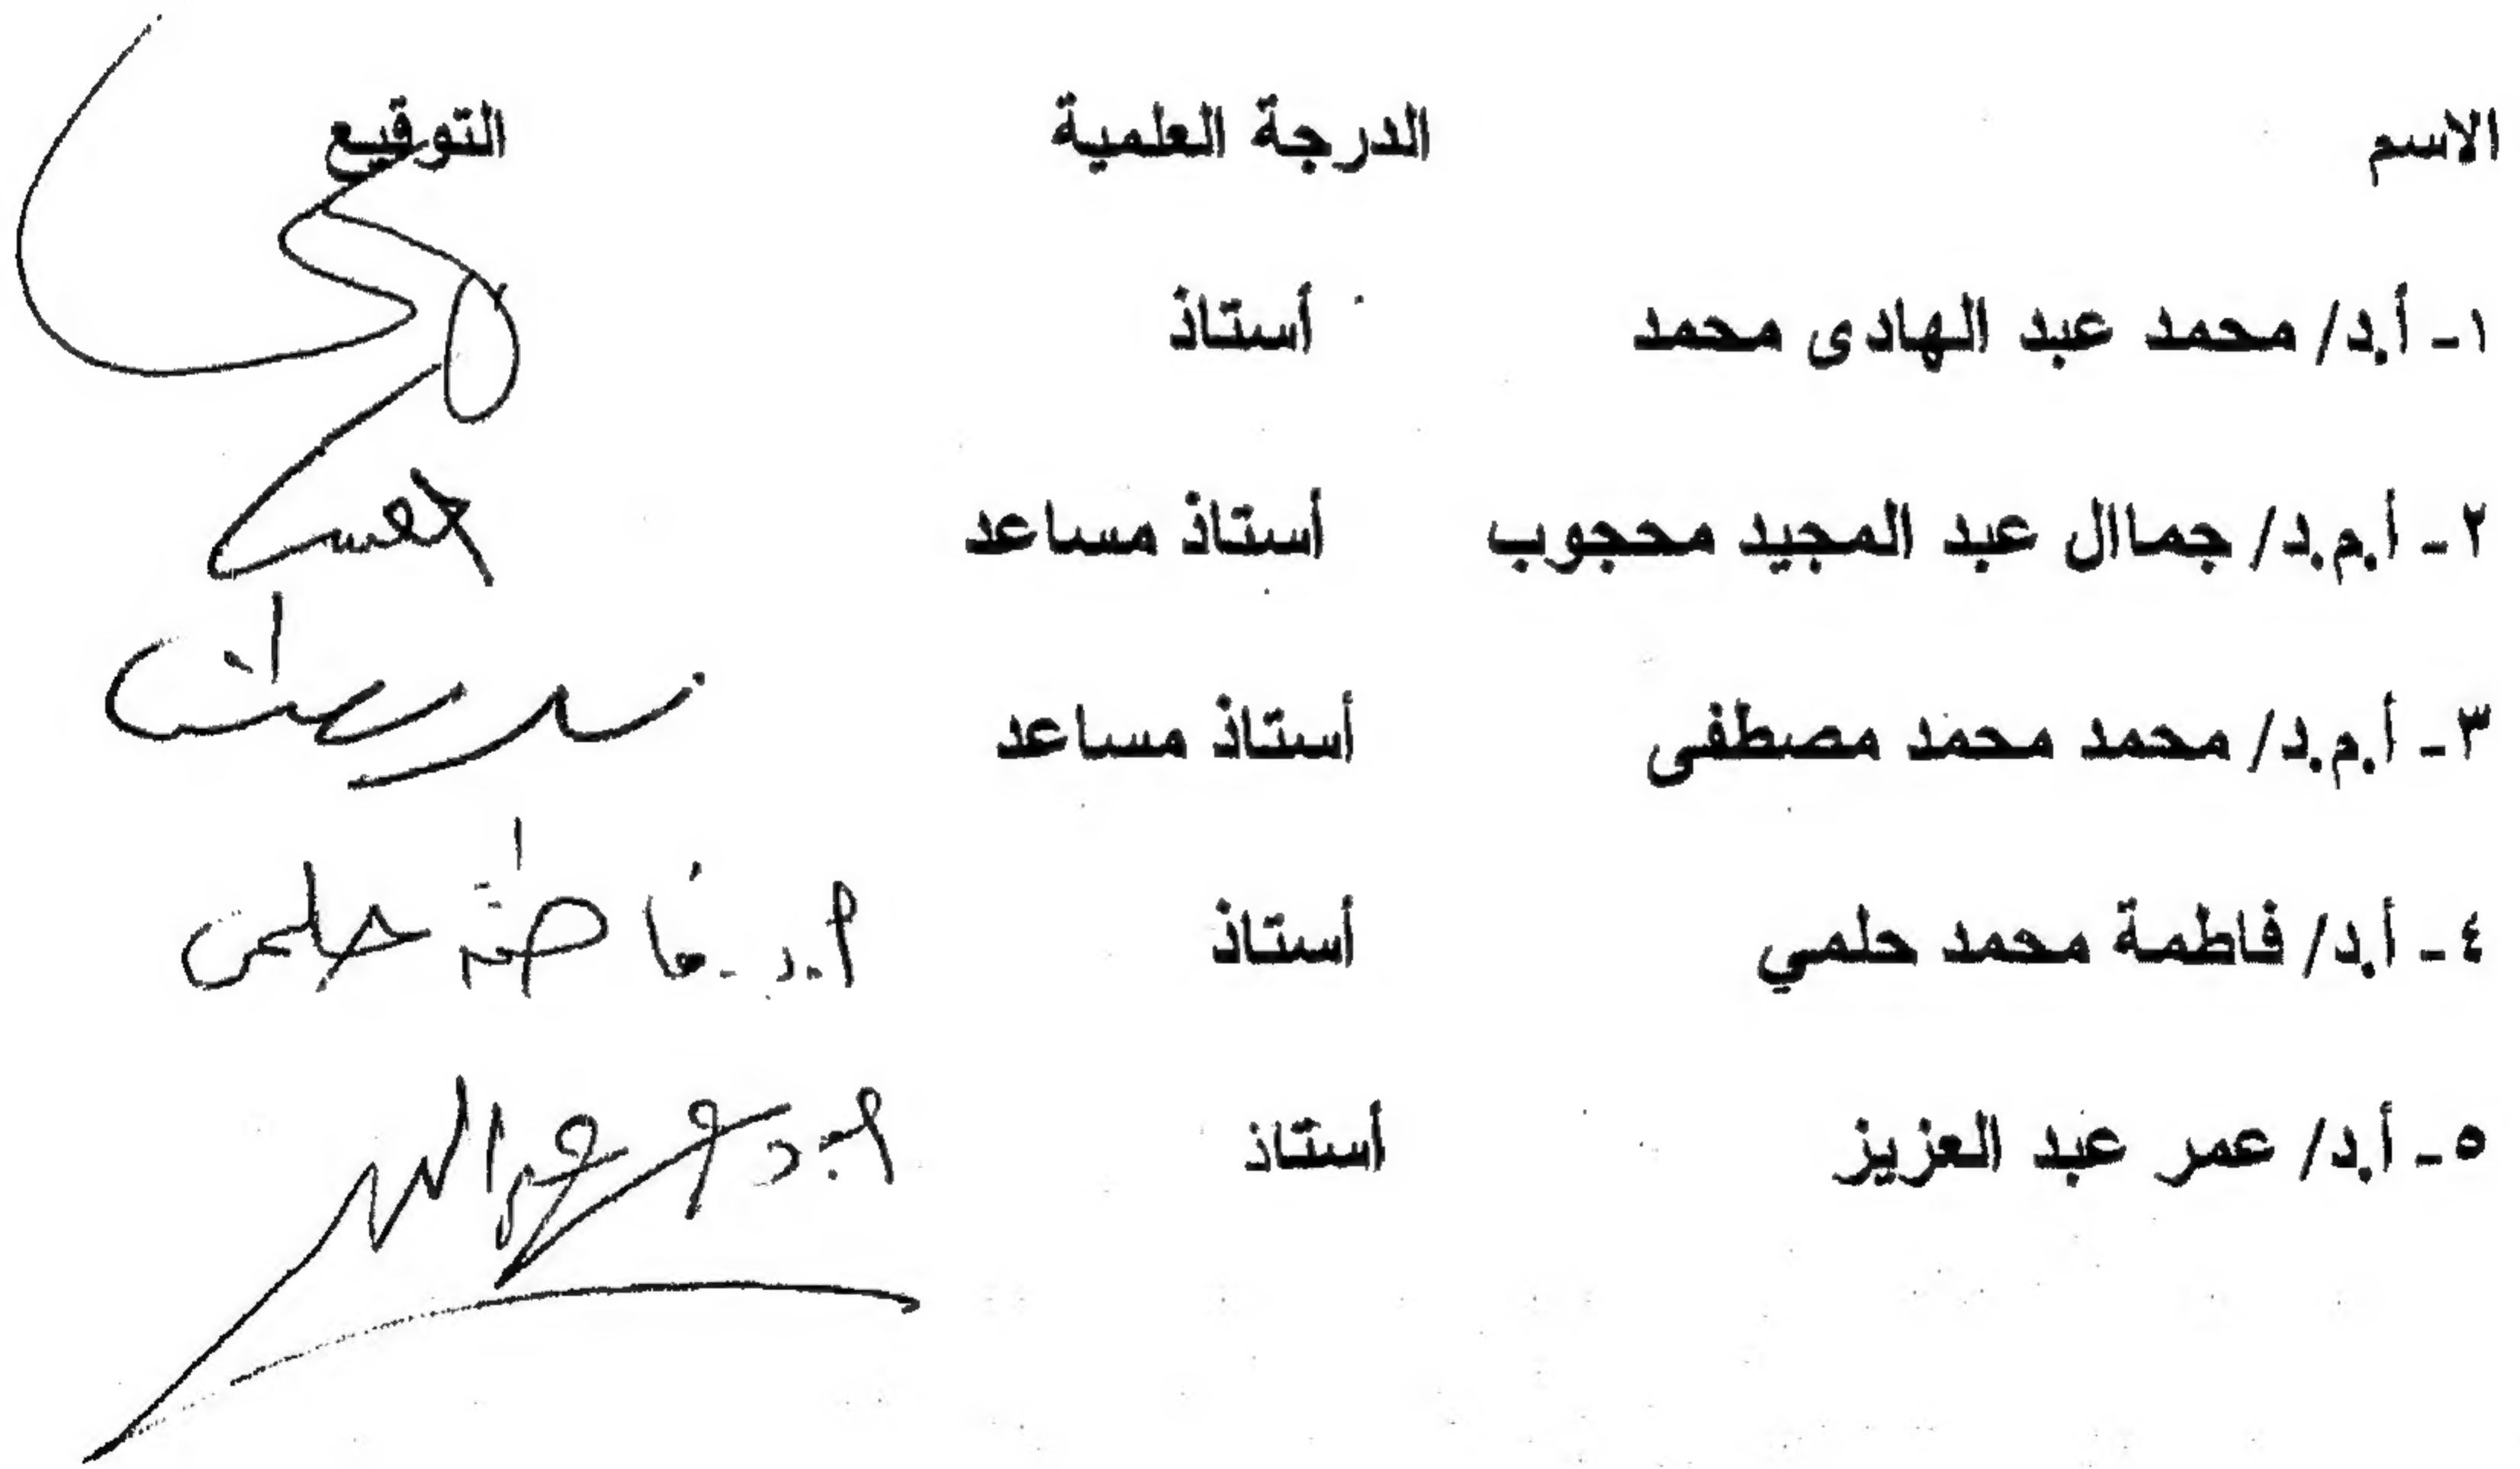 الاسم الدرجة العلمية التوقيع
١- أ.د/ محمد عبد الهادى محمد أستاذ
٢- أ.م.د/ جماال عبد المجيد محجوب أستاذ مساعد
٣- أ.م.د/ محمد محمد مصطفى أستاذ مساعد
٤- أ.د/ فاطمة محمد حلمي أستاذ أ.د. فاطمة حلمى
٥- أ.د/ عمر عبد العزيز أستاذ أ.د